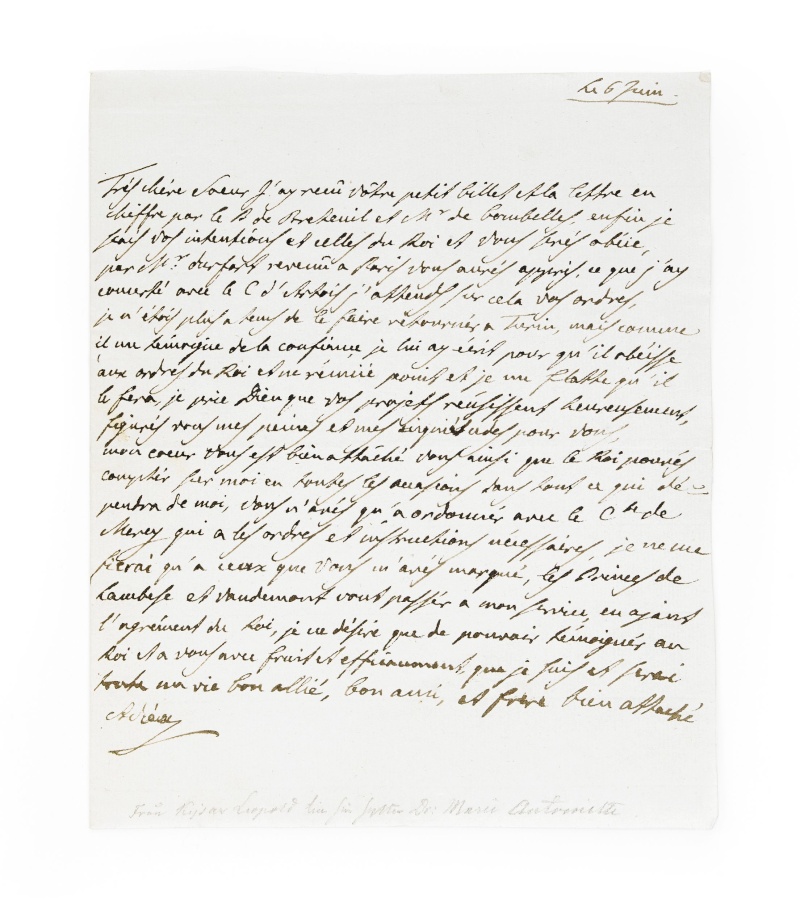 Le 6 Juin.
Trés chére Soeur J'ay recuü vôtre petit billet et la lettre en
chiffre par le B de Breteuil et Mr de bombelles, enfin je
scais vos intentions et celles du Roi et vous serés obéie,
par Mr. durfort revenu a Paris vous aurés appris, ce que j'ay
concerté avec le C d'Artois j'attends sur cela vos ordres,
je n'étois plus a tems de le faire retourner a Turin, mais comme
il me témoigne de la confiance, je lui ay écrit pour qu'il obéisse
aux ordres du Roi et ne remüe point et je me flatte qu'il
le fera, je prie Dieu que vos projets réusissent heureusement,
figurés vous mes peines et mes inquiétudes pour vous,
mon coeur vous est bien attâché vous ainsi que le Roi pouvés
comptér sur moi en toutes les occasions dans tout ce qui dé-
pendra de moi, vous n'avés qu'a ordonnér avec le Cte de
Mercy qui a les ordres et instructions nécessaires, je ne me
fierai qu'a ceux que vous m'avés marqué, les Princes de
Lambesc et Vaudemont vont passér a mon service en ayant
l'agrément du Roi, je ne désire que de pouvoir témoignér au
Roi et a vous avec fruit et efficacement, que je suis et serai
toute ma vie bon allié, bon ami, et frére bien attaché
Adieu
Från Kejsar Leopold till sin syster Dr: Marie Antoinette